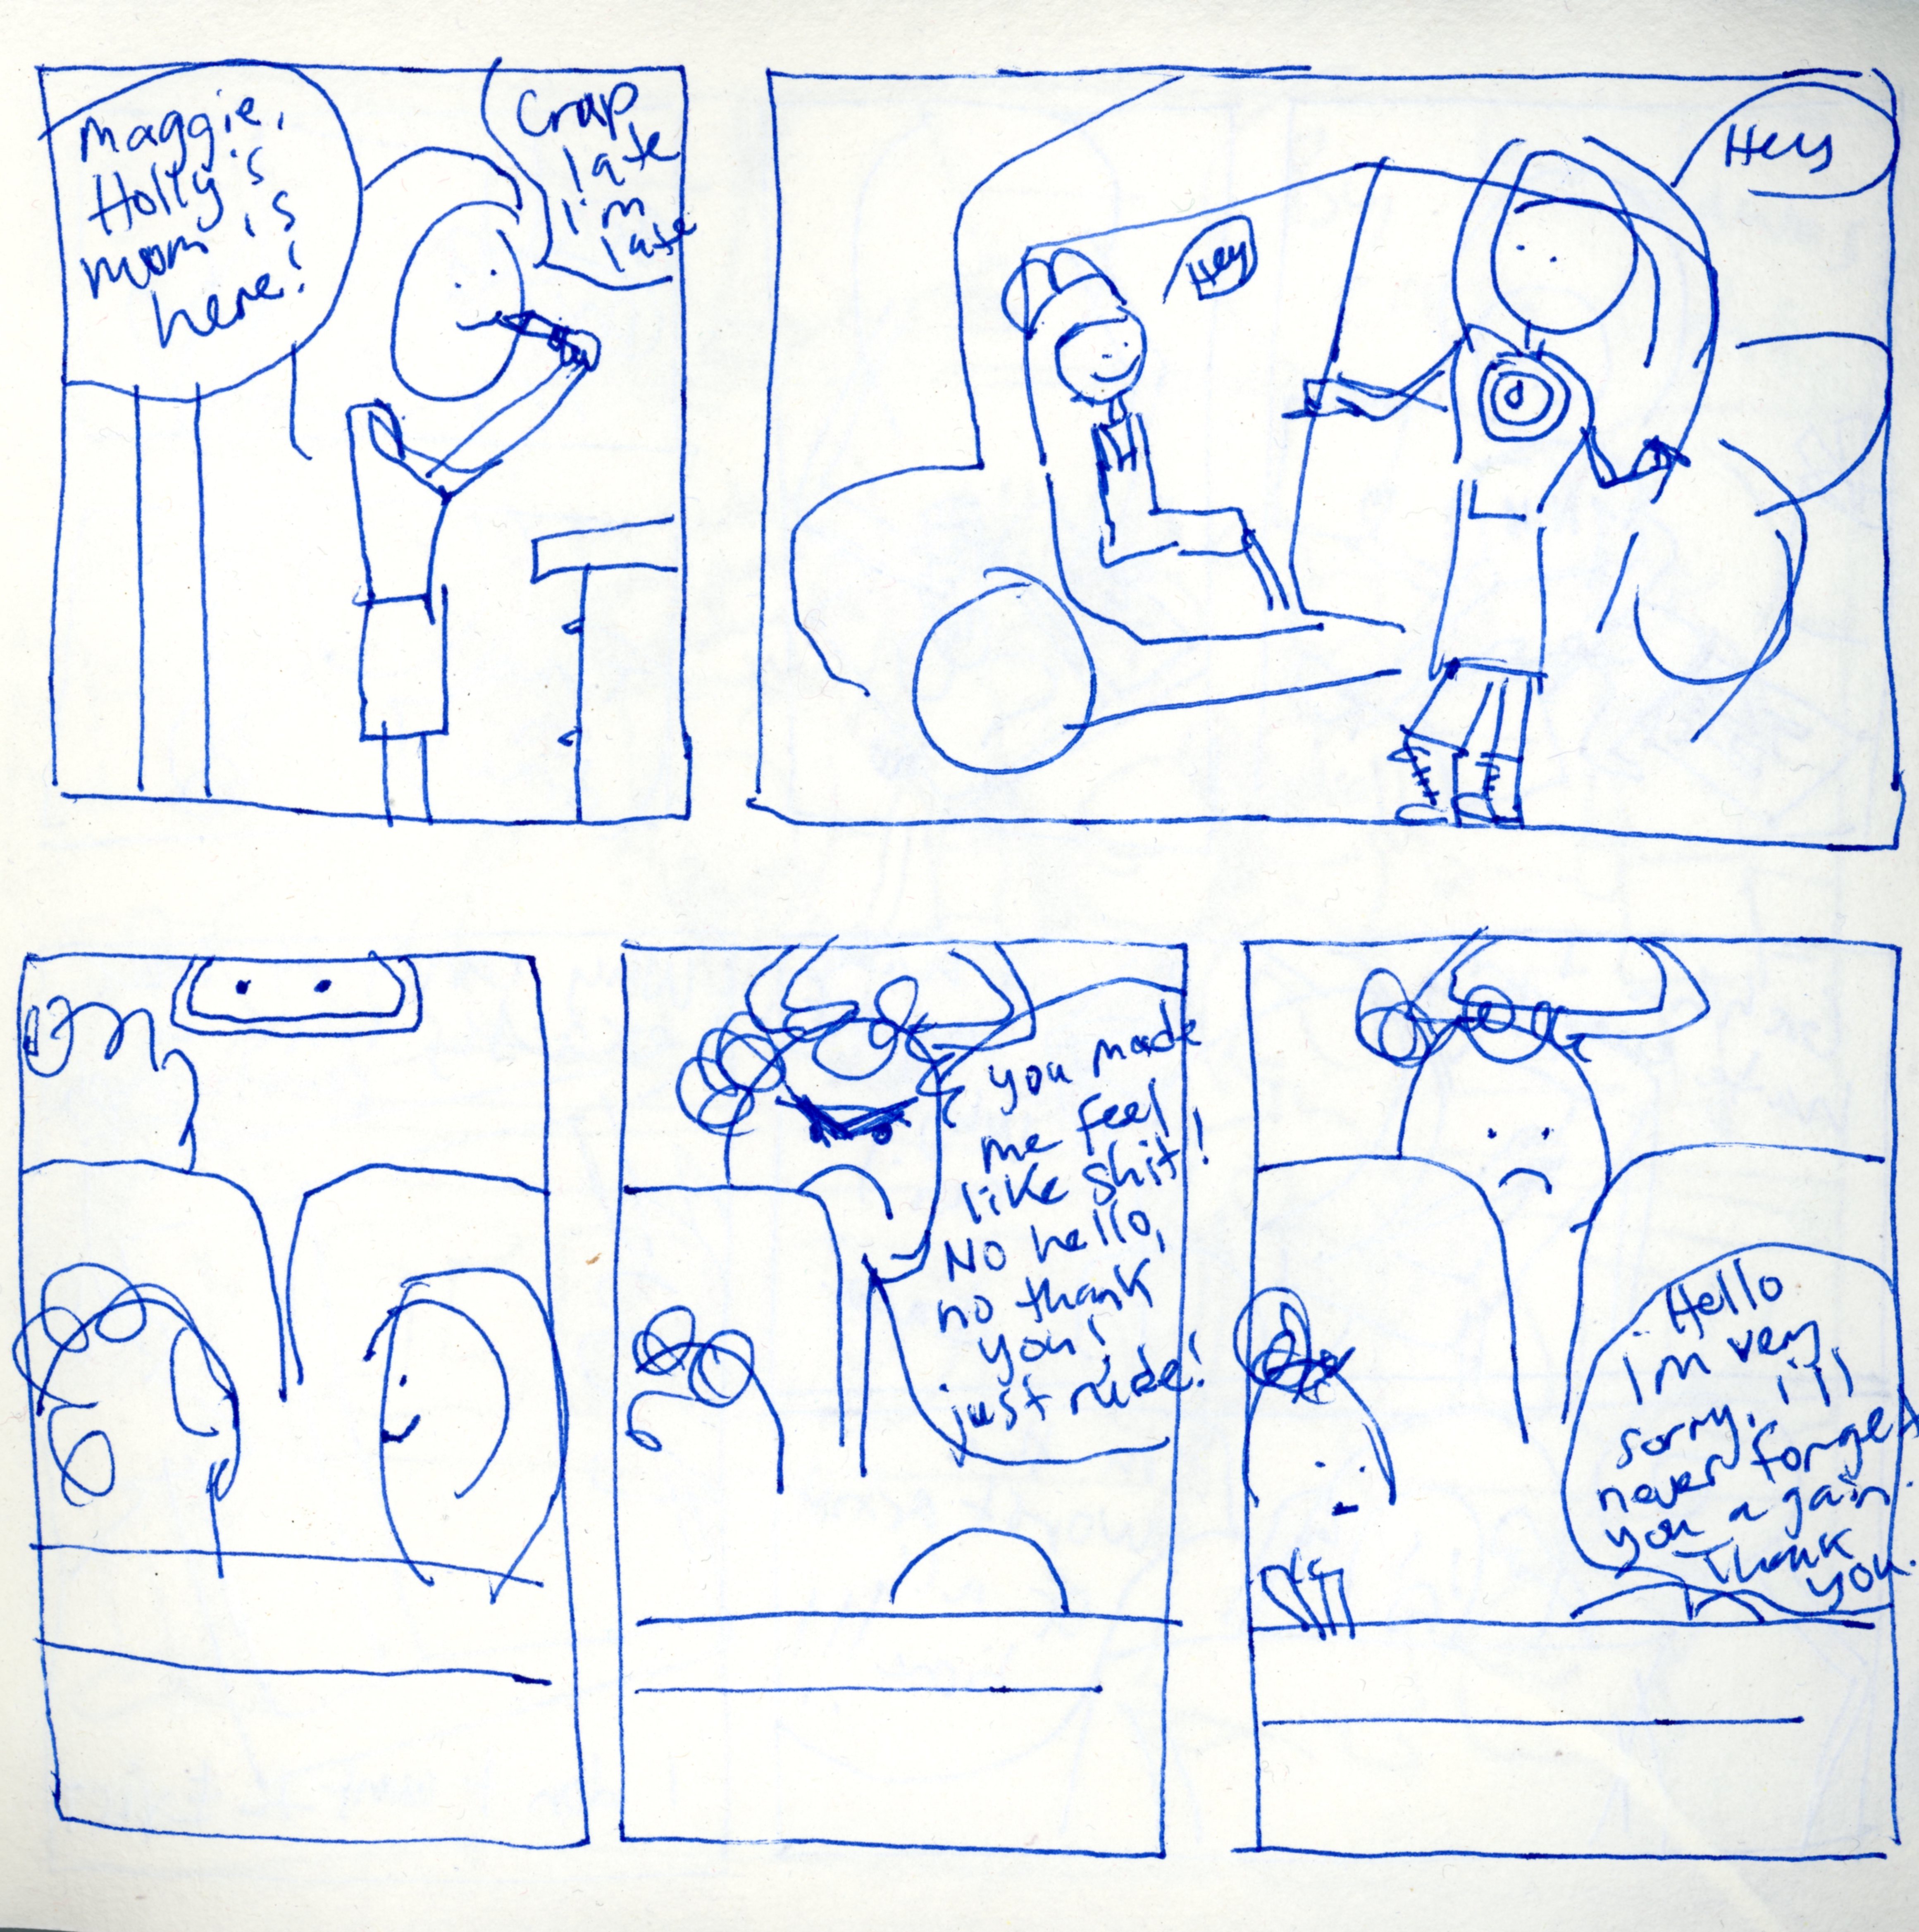 Maggie,
Holly's
mom is
here!
Crap
late
I'm
late
Hey
Hey
you made
me feel
like shit!
No hello,
no thank
you!
just rude!
Hello
I'm very
sorry. i'll
never forget
you again.
Thank
you.